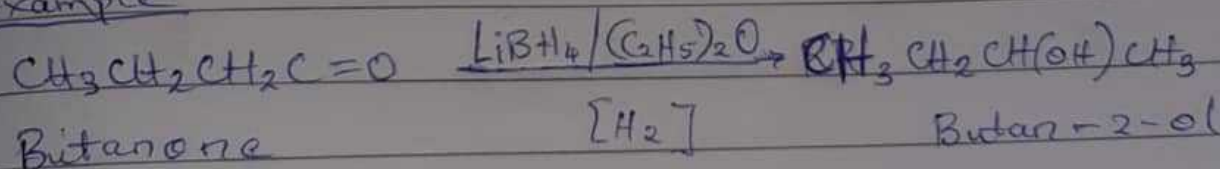 xample
CH3CH2CH2C=O LiBH4/(C2H5)2O→ CH3 CH2 CH(OH) CH3
Butanone [H2] Butan-2-ol